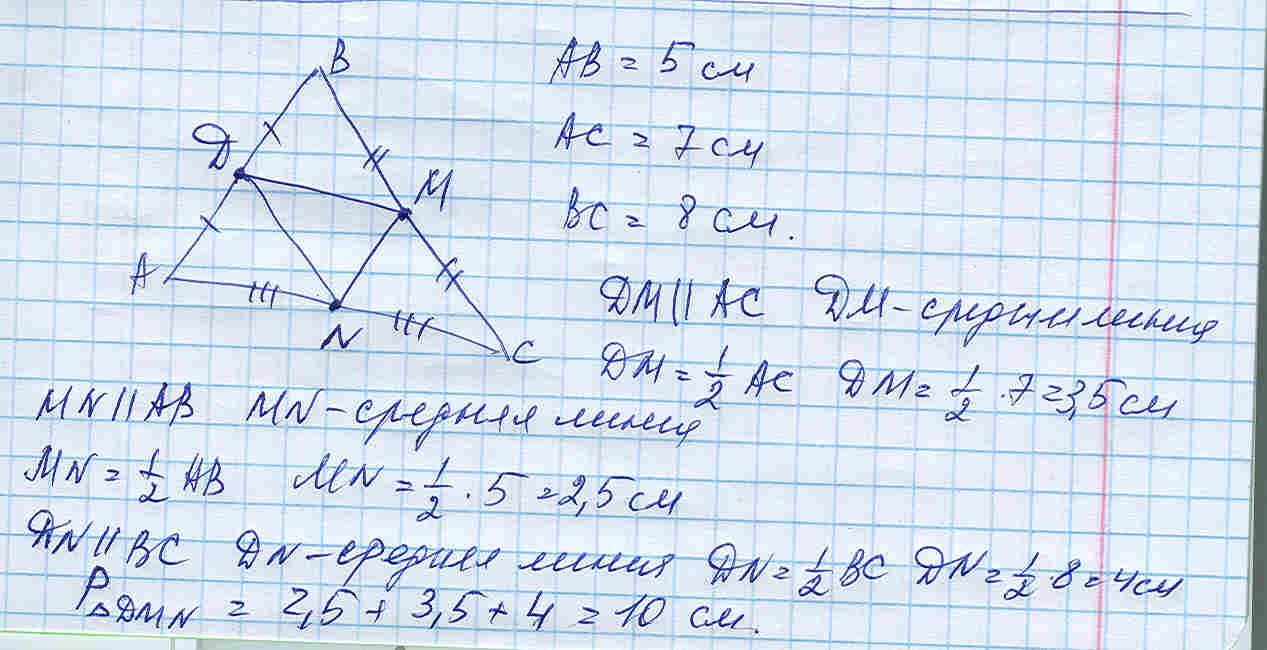 B
AB = 5 см
D
AC = 7 см
M
BC = 8 см.
A
DM || AC DM - средняя линия
N
C
DM = 1/2 AC DM = 1/2 · 7 = 3,5 см
MN || AB MN - средняя линия
MN = 1/2 AB MN = 1/2 · 5 = 2,5 см
DN || BC DN - средняя линия DN = 1/2 BC DN = 1/2 · 8 = 4 см
P△DMN = 2,5 + 3,5 + 4 = 10 см.